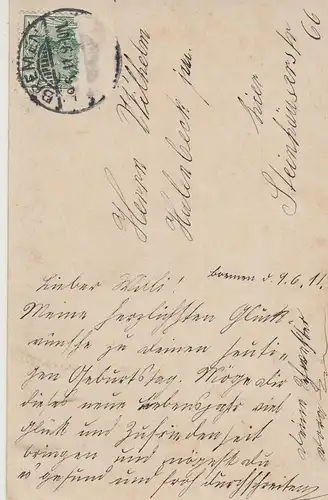 BREMEN
Herrn Wilhelm
Halenbeck jun.
hier
Steinhäuserstr
66
Bremen d. 9.6.11.
Lieber Willi!
Meine herzlichsten Glück-
wünsche zu deinem heuti-
gen Geburtstag. Möge dir
dieses neue Lebensjahr viel
Glück und Zufriedenheit
bringen und mögest du
es gesund und froh durchschreiten
deine